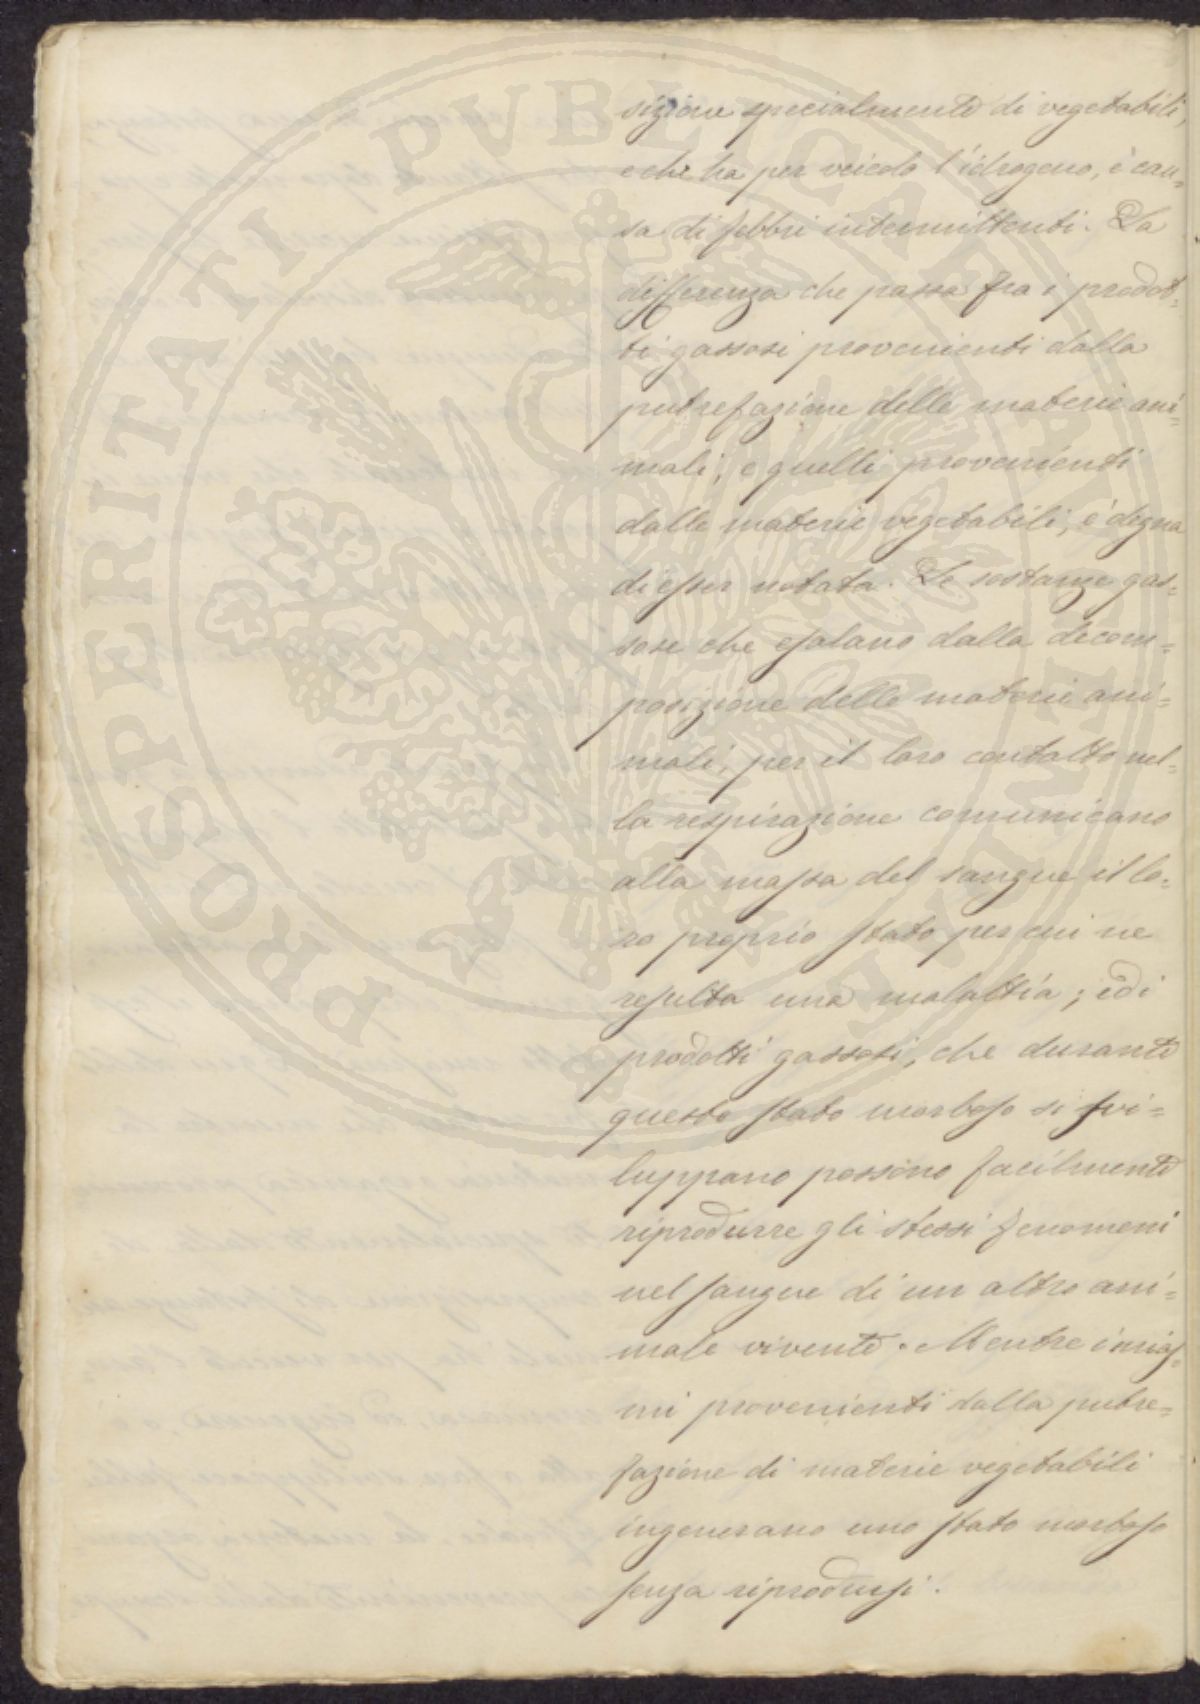 PROSPERITATI PVBLICAE AVGENDAE
sizione specialmente di vegetabili,
e che ha per veicolo l'idrogeno, è cau=
sa di febbri intermittenti. La
differenza che passa fra i prodot=
ti gassosi provenienti dalla
putrefazione delle materie ani=
mali, e quelli provenienti
dalle materie vegetabili, è degna
di esser notata. Le sostanze gas=
sose che esalano dalla decom=
posizione delle materie ani=
mali, per il loro contatto nel=
la respirazione comunicano
alla massa del sangue il lo=
ro proprio stato per cui ne
resulta una malattia; ed i
prodotti gassosi, che durante
questo stato morboso si svi=
luppano possono facilmente
riprodurre gli stessi fenomeni
nel sangue di un altro ani=
male vivente. Mentre i mias=
mi provenienti dalla putre=
fazione di materie vegetabili
ingenerano uno stato morboso
senza riprodursi.